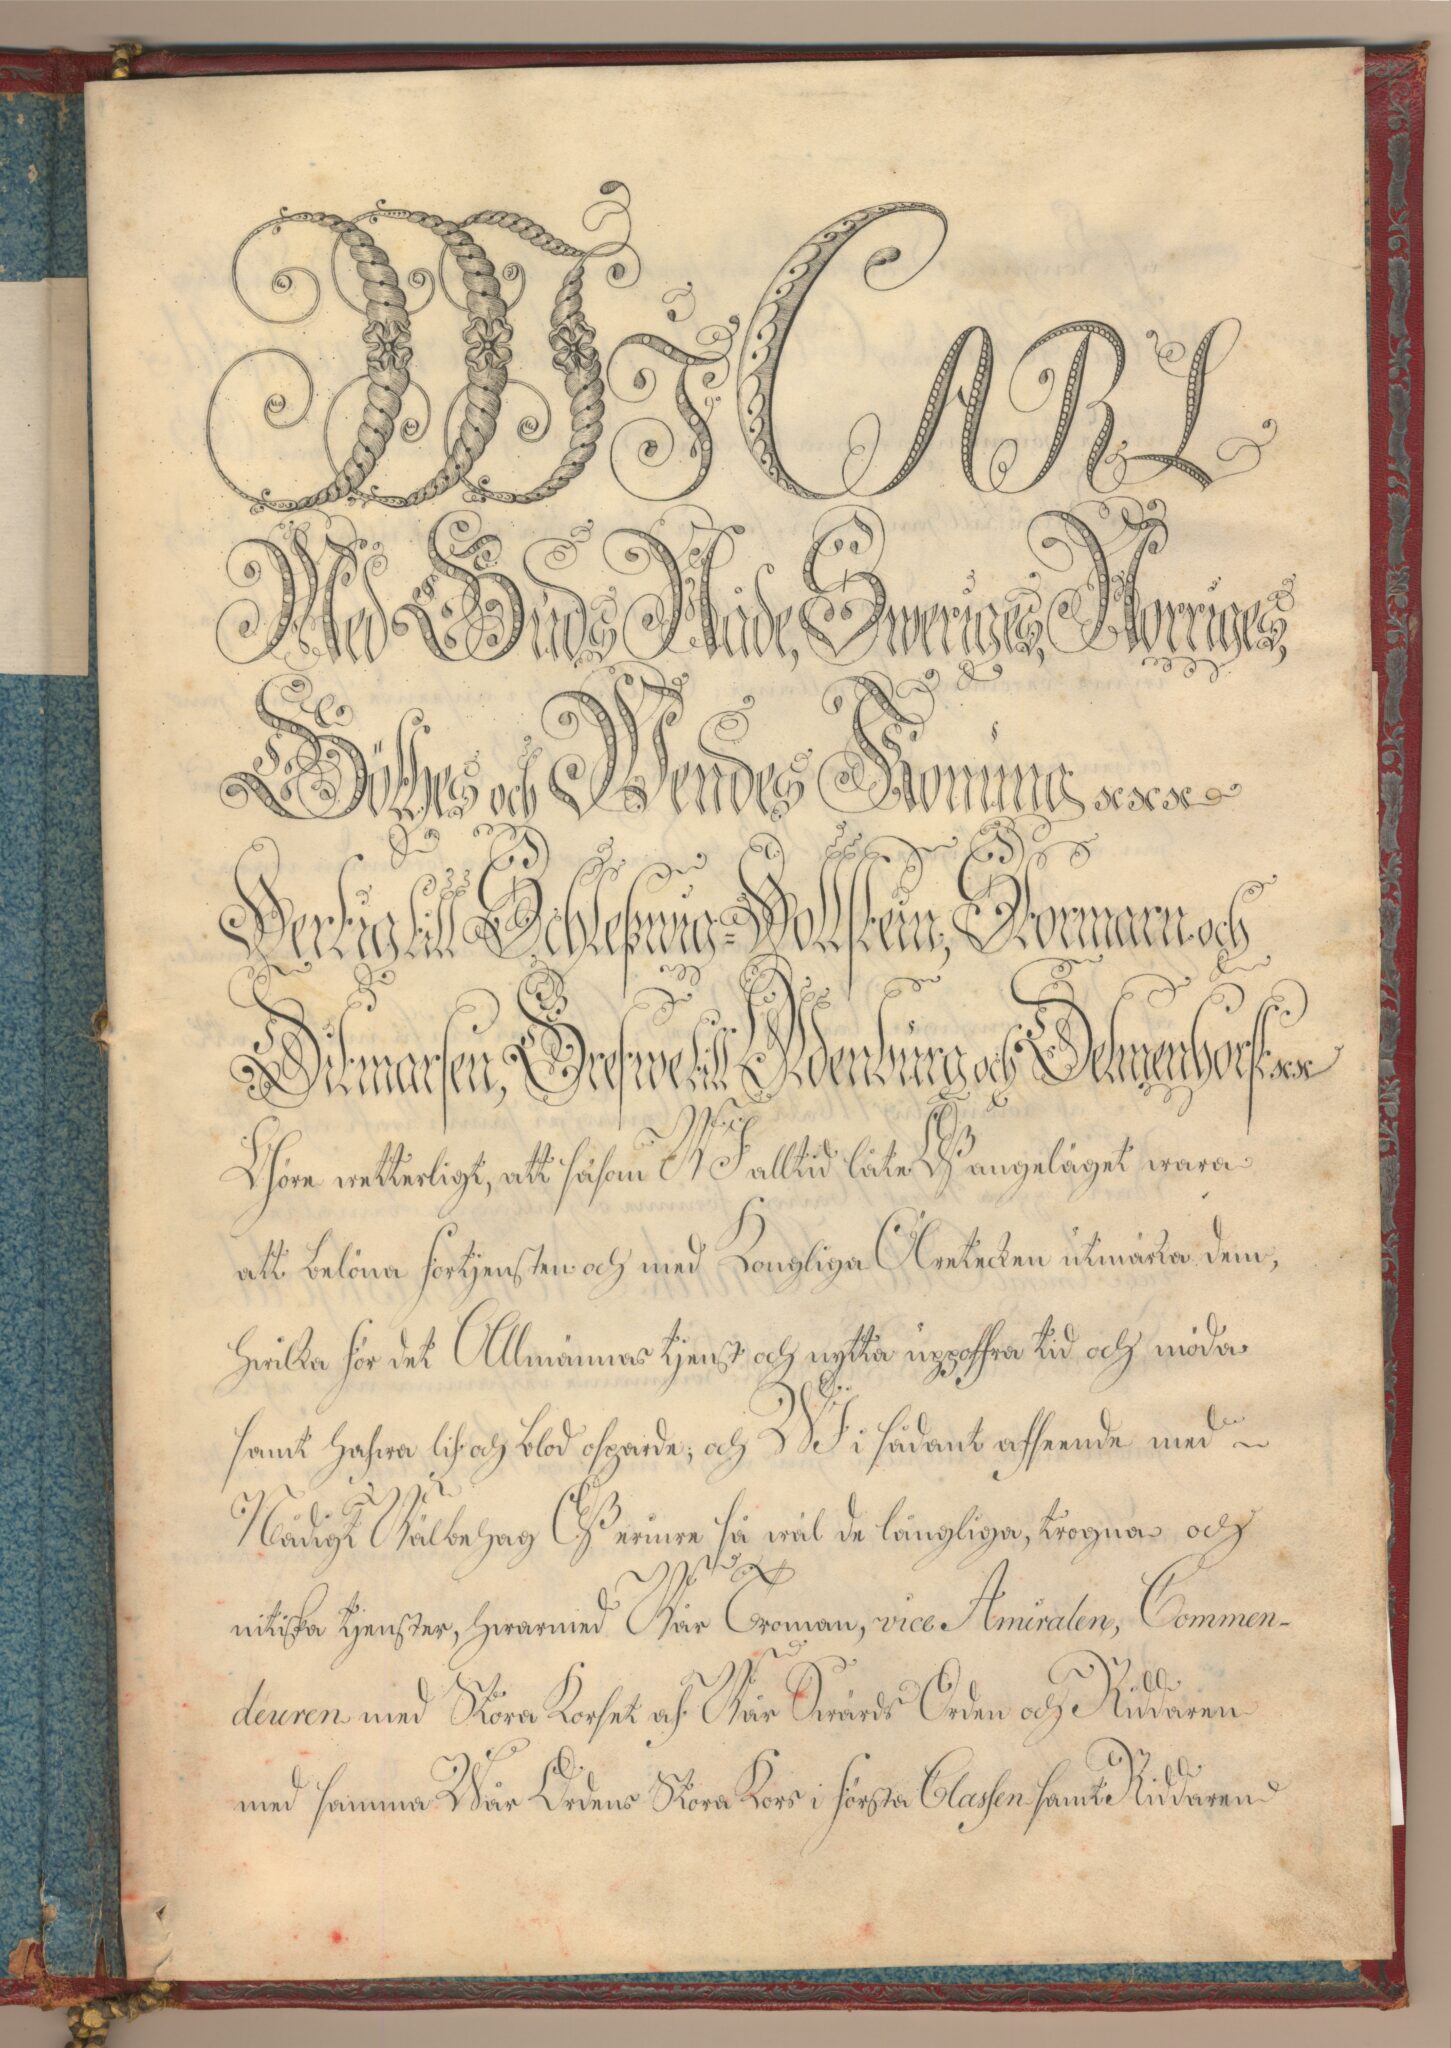 Wi CARL
Med Guds Nåde, Sweriges, Norriges,
Göthes och Wendes Konung
Hertig till Schleßwig-Hollstein, Stormarn och
Ditmarsen, Grefwe till Oldenburg och Delmenhorst
Göre wetterligt, att såsom WI alltid låte Oß angeläget wara
att belöna förtjensten och med Kongliga Äretecken utmärka dem,
hwilka för det Allmännas tjenst och nytta uppoffra tid och möda
samt hafwa lif och blod ospardt; och WI i sådant afseende med
Nådigt Wälbehag Oß erinre så wäl de långliga, trogna och
nitiska tjenster, hwarmed Wår Troman, vice Amiralen, Commen-
deuren med Stora Korset af Wår Swärds Orden och Riddaren
med samma Wår Ordens Stora Kors i första Classen samt Riddaren